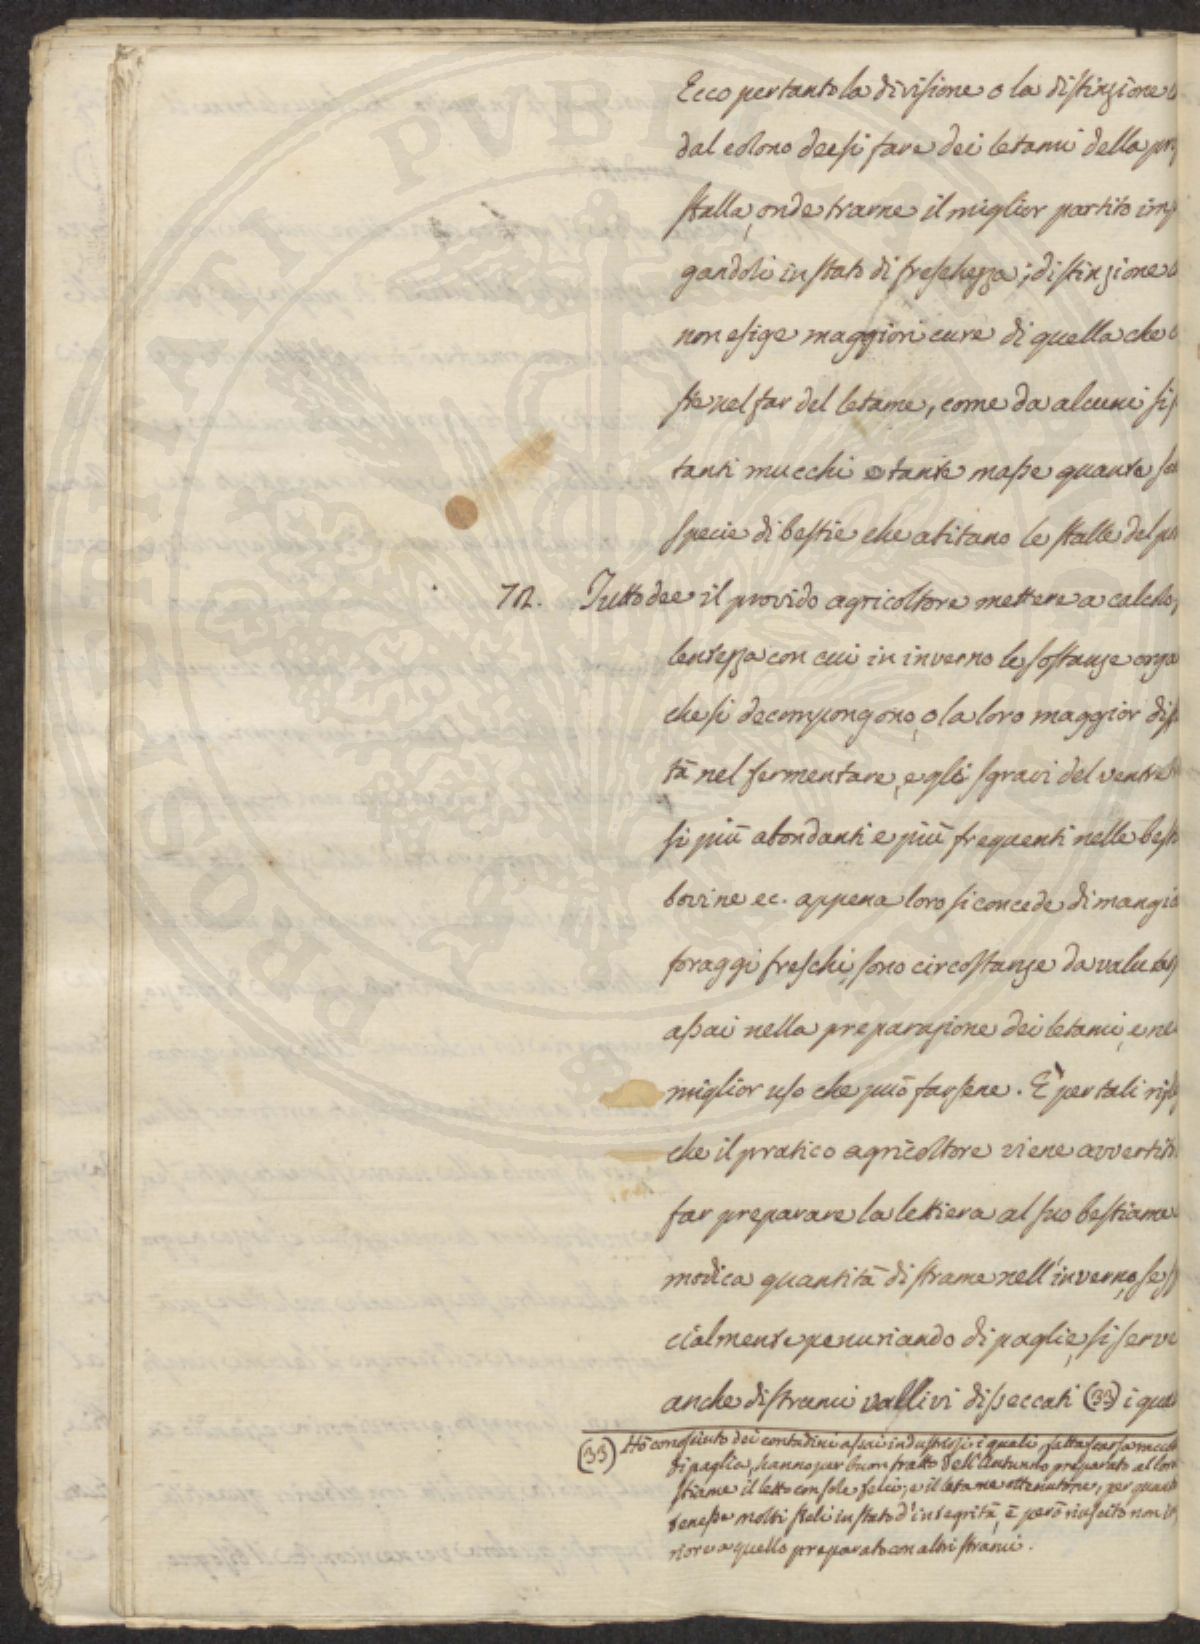 Ecco pertanto la divisione o la distinzione
dal colono deesi fare dei letami della
stalla, onde trarne il miglior partito
gandoli in stato di freschezza; distinzione
non esige maggiori cure di quella che
ste nel far del letame, come da alcuni si
tanti mucchi o tante masse quante
specie di bestie che abitano le stalle del
72. Tutto dee il provido agricoltore mettere a calcolo,
lentezza con cui in inverno le sostanze orga
che si decompongono, o la loro maggior
tà nel fermentare, e gli sgravi del ventre
si più abondanti e più frequenti nelle best
bovine ec. appena loro si concede di mangia
foraggi freschi, sono circostanze da valutarsi
assai nella preparazione dei letami, e ne
miglior uso che può farsene. È per tali
che il pratico agricoltore viene avvertito
far preparare la lettiera al suo bestiame
modica quantità di strame nell'inverno, se
cialmente penuriando di paglie, si serve
anche di strami vallivi disseccati (33) i qua
(33) Hò conosciuto dei contadini assai industriosi i quali, fatta scarsa
di paglia, hanno per buon tratto dell'Autunno preparato al loro
stiame il letto con sole felci; e il letame ottenutone, per quanto
tenesse molti steli in stato d'integrità, è però riuscito non
riore a quello preparato con altri strami.
PVBLICVS